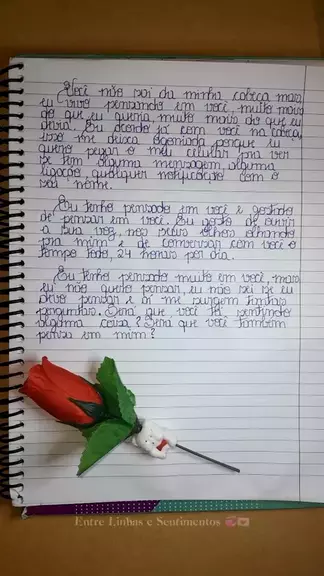 Você não sai da minha cabeça mais,
eu vivo pensando em você, muito mais
do que eu queria, muito mais do que eu
Eu acordo já com você na cabeça,
isso me deixa agoniada porque eu
quero pegar o meu celular pra ver
se tem alguma mensagem, alguma
ligação, qualquer notificação com o
seu nome.
Eu tenho pensado em você e gostado
de pensar em você. Eu gosto de ouvir
a sua voz, nos seus olhos olhando
pra mim e de conversar com você o
tempo todo, 24 horas por dia.
Eu tenho pensado muito em você, mas
eu não quero pensar, eu não sei se eu
devo pensar e aí me surgem tantas
perguntas. Será que você tá sentindo
alguma coisa? Será que você também
pensa em mim?
Entre Linhas e Sentimentos